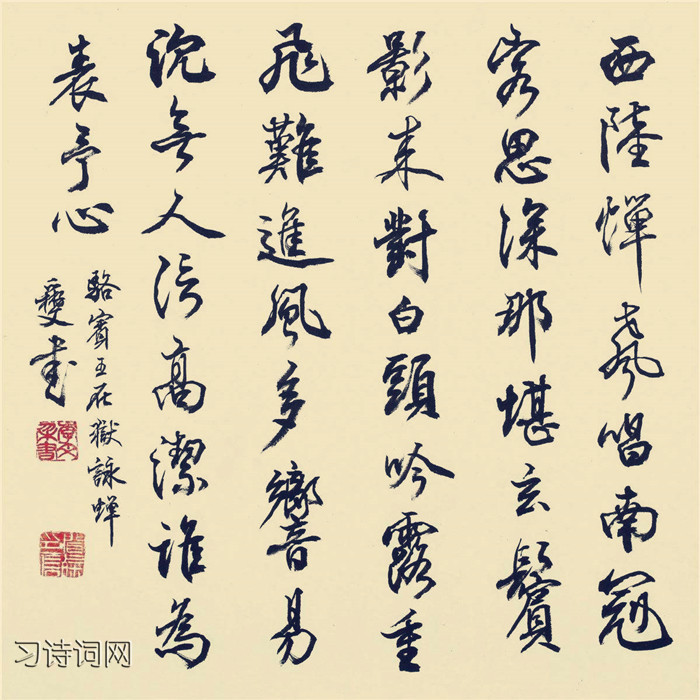 西陸蟬聲唱南冠
客思深那堪玄鬢
影来對白頭吟露重
飛難進風多響易
沉無人信高潔誰為
表予心
駱賓王在獄詠蟬
书
习诗词网